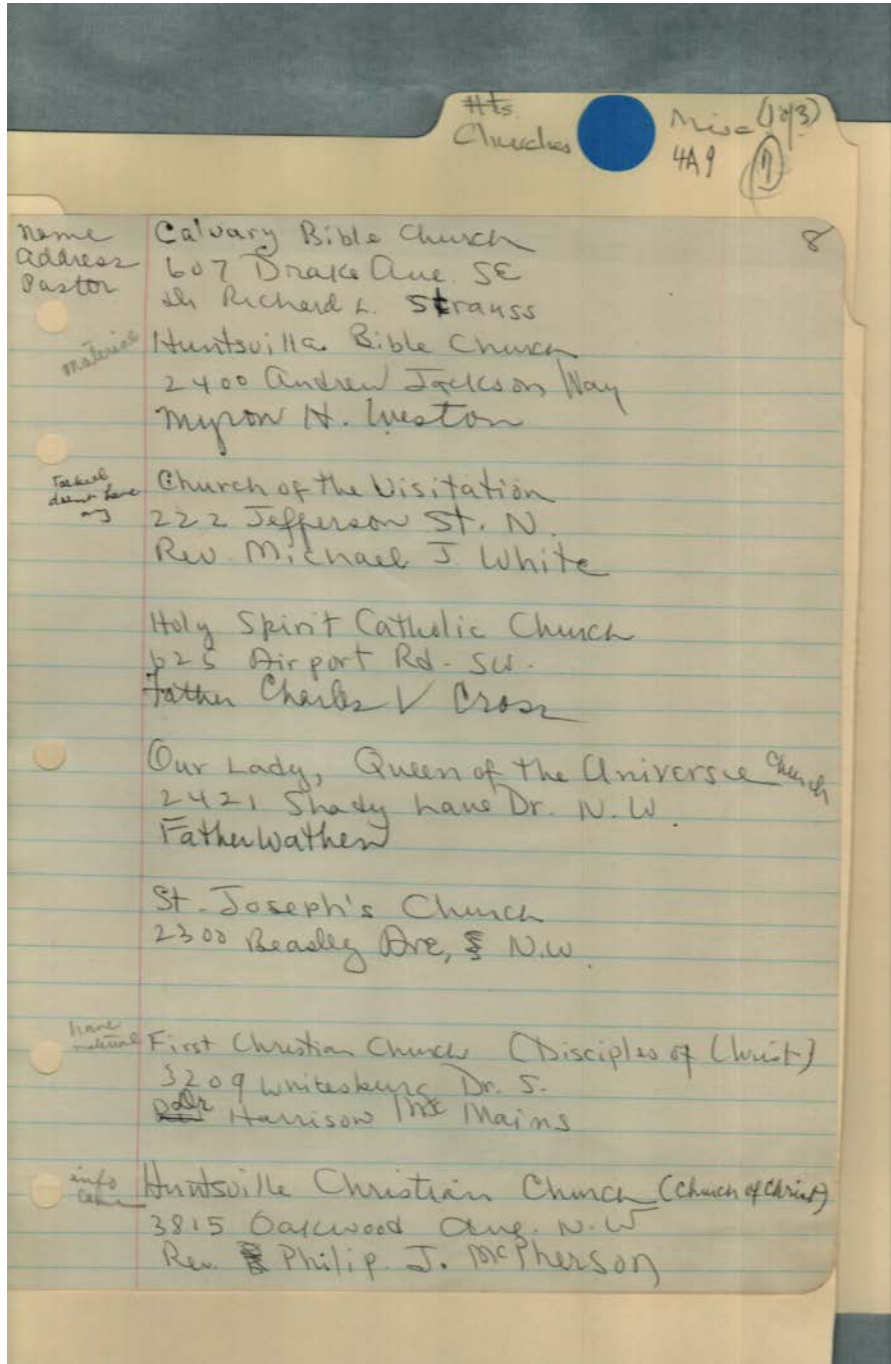 Hts.
Churches
Misc (1 of 3)
4A9
7
8
name
address
Pastor
Calvary Bible Church
607 Drake Ave. SE
Dr Richard L. Strauss
material
Huntsville Bible Church
2400 Andrew Jackson Way
Myron H. Weston
doesn't have
any
Church of the Visitation
222 Jefferson St. N.
Rev. Michael J. White
Holy Spirit Catholic Church
625 Airport Rd. SW.
Father Charles V Cross
Our Lady, Queen of the Universe Church
2421 Shady Lane Dr. N.W.
Father Wathen
St. Joseph's Church
2300 Beasley Ave, N.W.
have
material
First Christian Church (Disciples of Christ)
3209 Whitesburg Dr. S.
Dr Harrison Mc Mains
info
came
Huntsville Christian Church (Church of Christ)
3815 Oakwood Ave. N.W
Rev. Philip J. McPherson